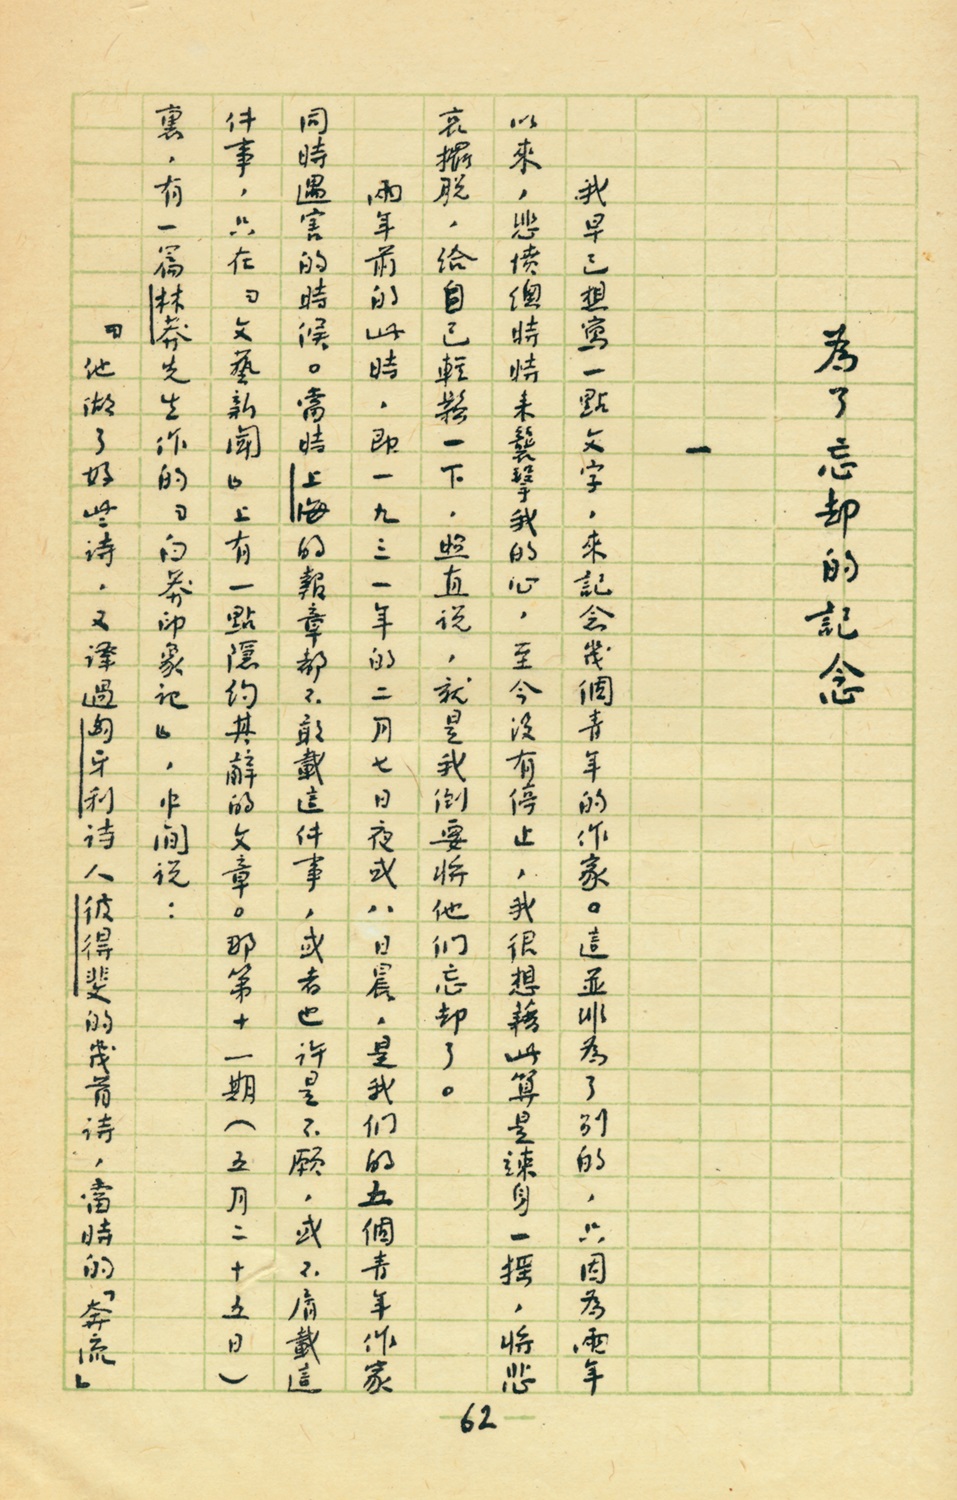 為了忘却的記念
一
我早已想寫一點文字，來記念幾個青年的作家。這並非為了别的，只因為兩年
以來，悲憤總時時来襲擊我的心，至今没有停止，我很想藉此算是竦身一摇，將悲
哀擺脱，給自己輕鬆一下，照直说，就是我倒要將他们忘却了。
兩年前的此時，即一九三一年的二月七日夜或八日晨，是我们的五個青年作家
同時遇害的時候。當時上海的報章都不敢載這件事，或者也许是不願，或不屑載這
件事，只在『文藝新聞』上有一點隱約其辭的文章。那第十一期（五月二十五日）
裏，有一篇林莽先生作的『白莽印象记』，中间说：
『他做了好些诗，又譯過匈牙利诗人彼得斐的幾首诗，當時的「奔流」
62